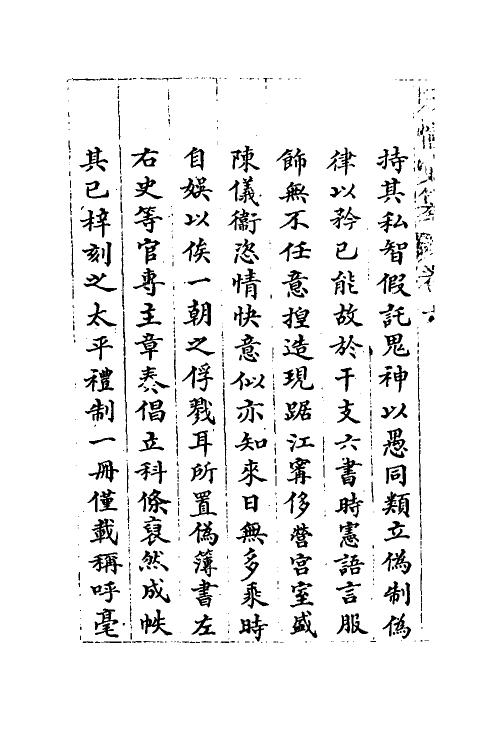 持其私智假託鬼神以愚同類立偽制偽
律以矜已能故於干支六書時憲語言服
飾無不任意揑造現踞江寗侈營宫室盛
陳儀衞恣情快意似亦知來日無多乘時
自娱以俟一朝之俘戮耳所置偽簿書左
右史等官專主章奏倡立科條裒然成帙
其已梓刻之太平禮制一冊僅載稱呼毫